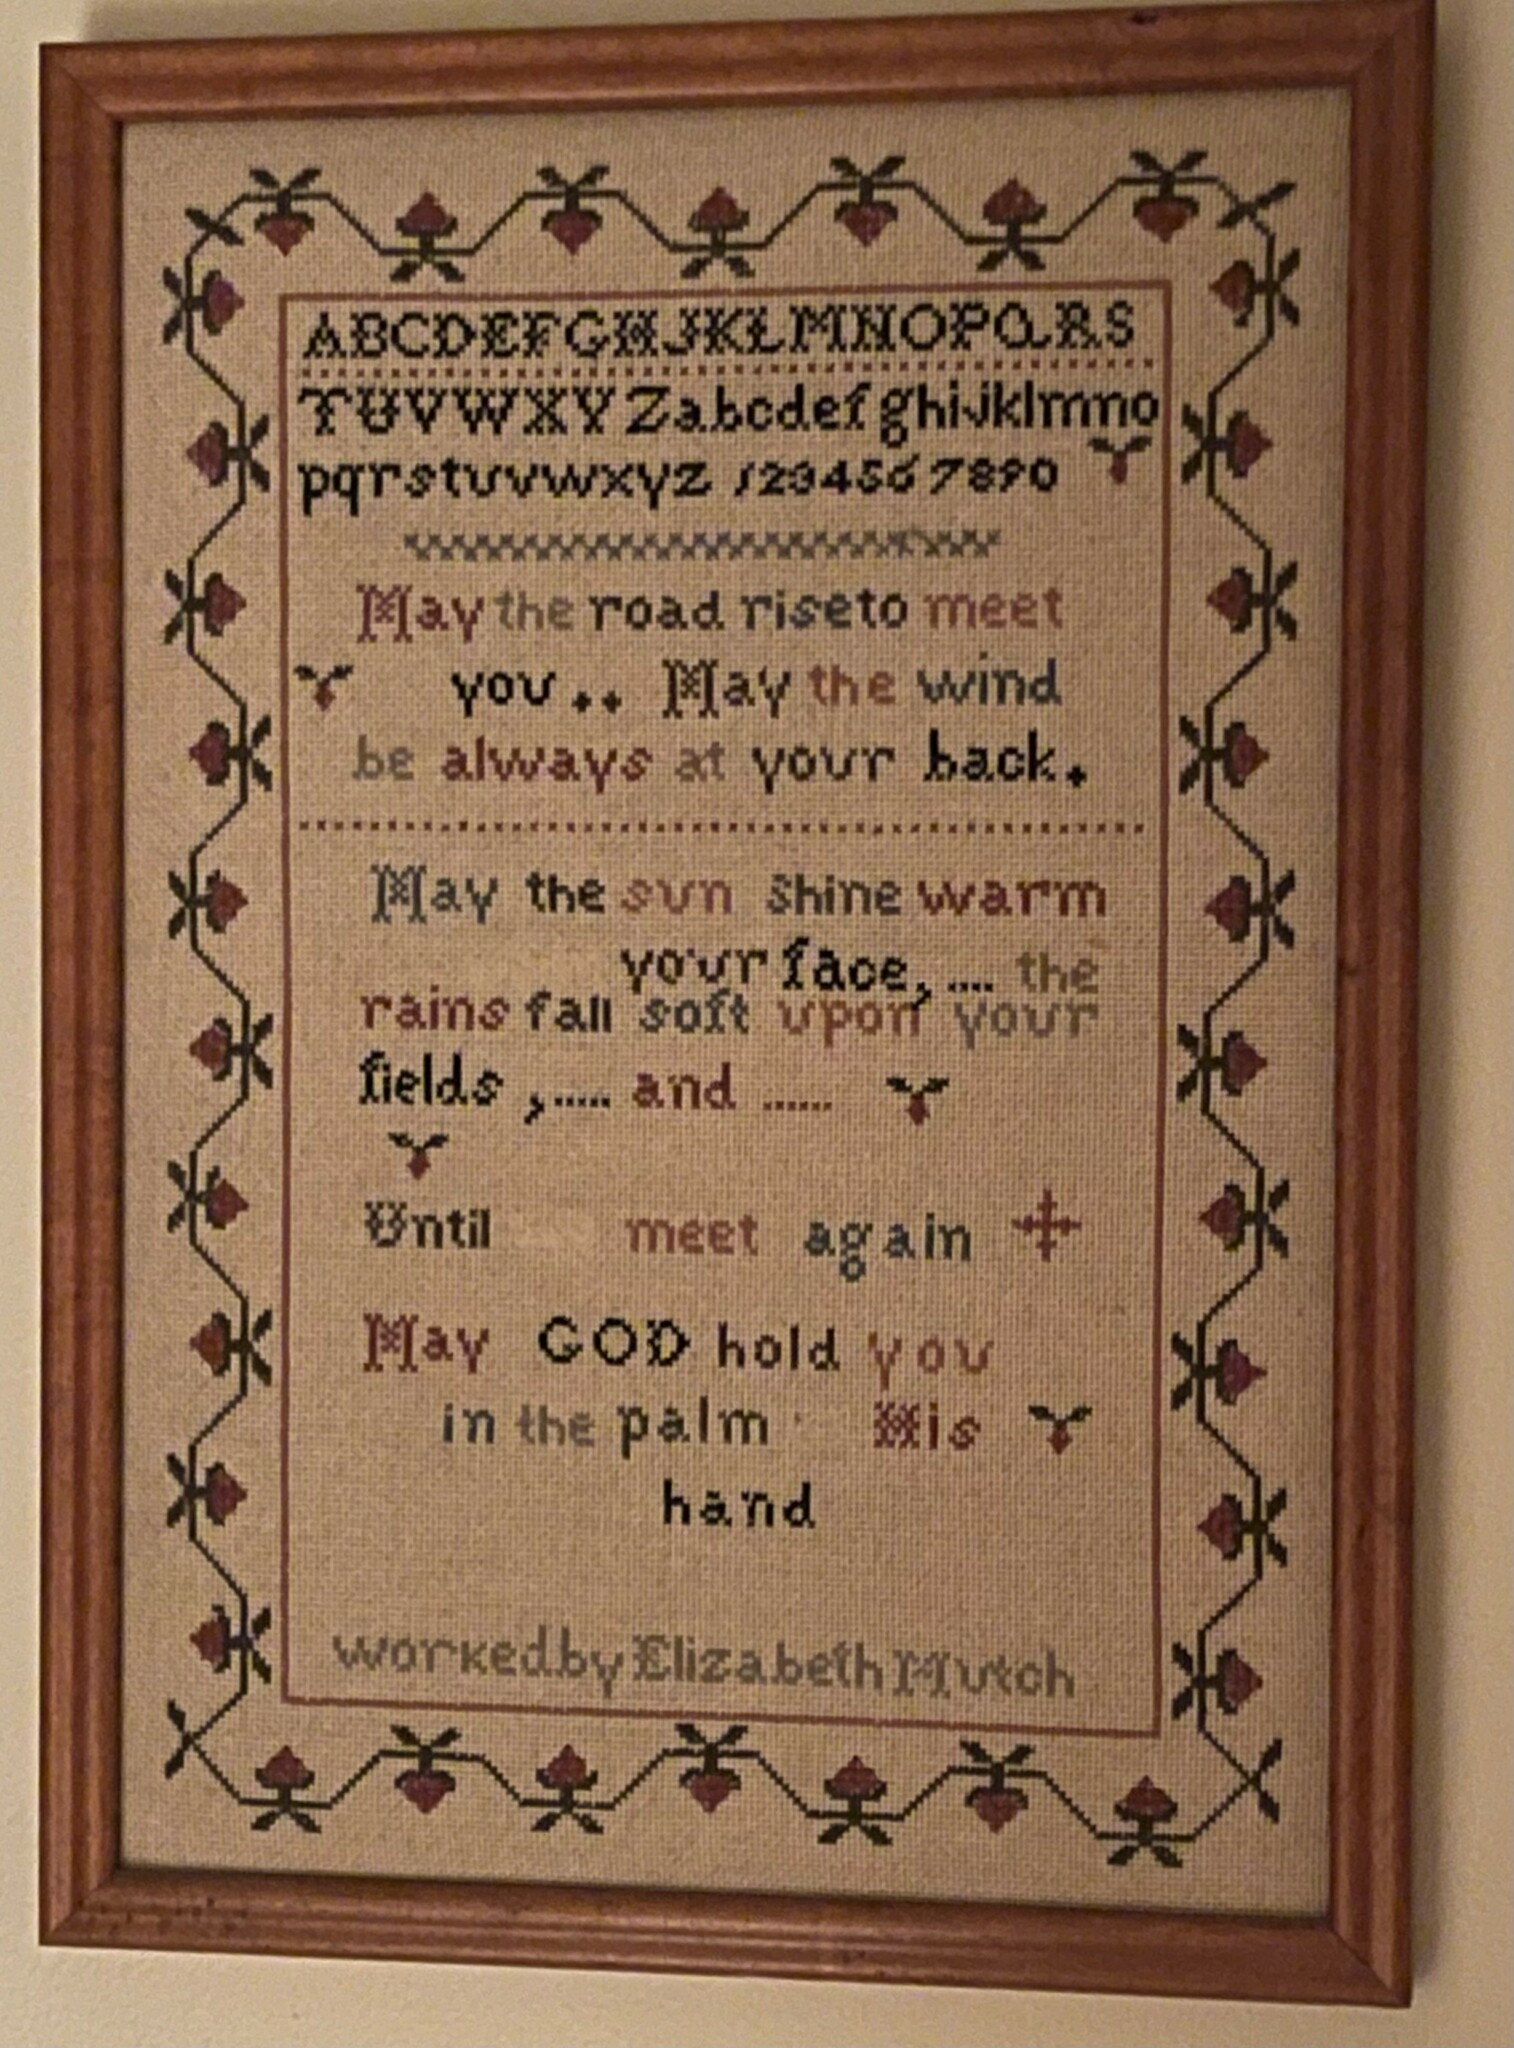 ABCDEFGHJKLMNOPQRS
TUVWXYZabcdefghijklmno
pqrstuvwxyz 1234567890
May the road rise to meet
you .. May the wind
be always at your back.
May the sun shine warm
your face, .... the
rains fall soft upon your
fields ,..... and ......
Until meet again
May GOD hold you
in the palm His
hand
worked by Elizabeth Mutch